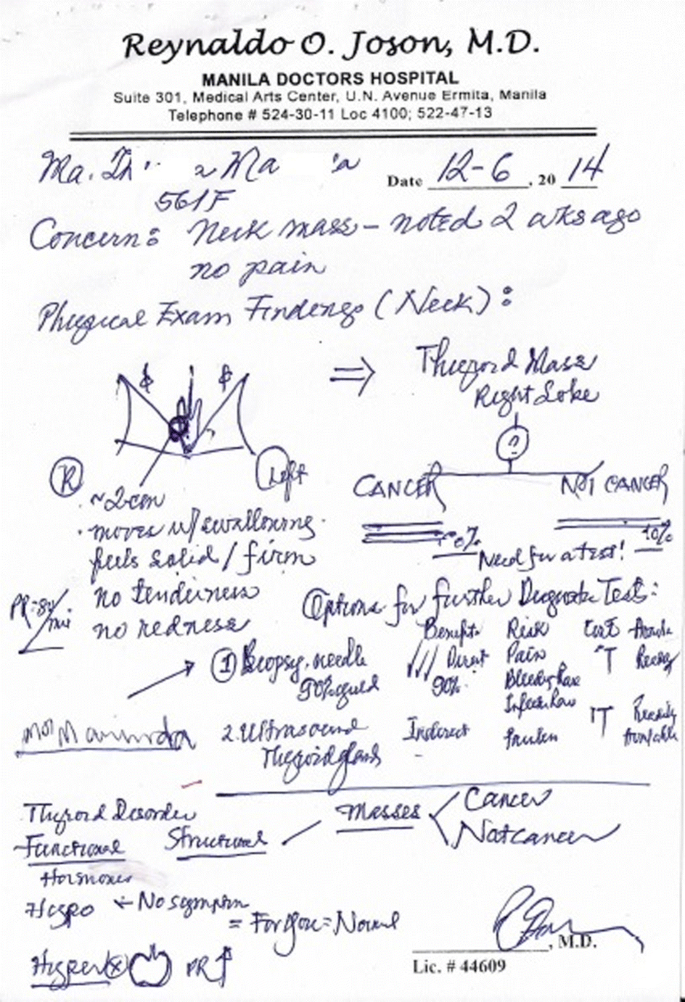 Reynaldo O. Joson, M.D.
MANILA DOCTORS HOSPITAL
Suite 301, Medical Arts Center, U.N. Avenue Ermita, Manila
Telephone # 524-30-11 Loc 4100; 522-47-13
Ma. Th Ma a Date 12-6, 20 14
56/F
Concern: Neck mass – noted 2 wks ago
no pain
Physical Exam Findings (Neck):
⇒ Thyroid Mass
Right Lobe
?
R Left
CANCER NOT CANCER
~2 cm
moves w/ swallowing
feels solid / firm
no tenderness
no redness
Need for a test!
Options for further Diagnostic Tests:
Benefit Risk Cost
① Biopsy, needle Direct Pain ↑ Ready
90% 90%
2. Ultrasound Indirect ↑ Readily
Thyroid gland Available
Thyroid Disorder
Functional Structural Masses Cancer
Not cancer
Hormones
Hypo ← No symptom
= For you = Normal
Hyper PR ↑
, M.D.
Lic. # 44609